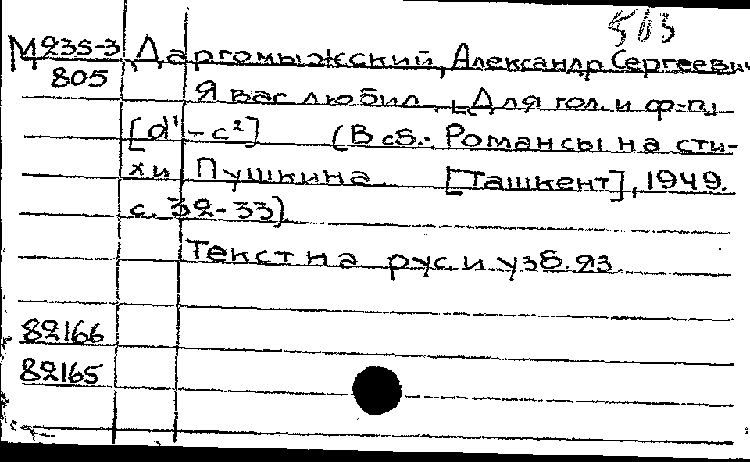 563
М235-3 Даргомыжский, Александр Сергеевич
805 Я вас любил... [Для гол. и ф-п.]
[d¹-c²] (В сб.: Романсы на сти-
хи Пушкина [Ташкент], 1949.
с. 32-33)
Текст на рус. и узб. яз.
82166
82165